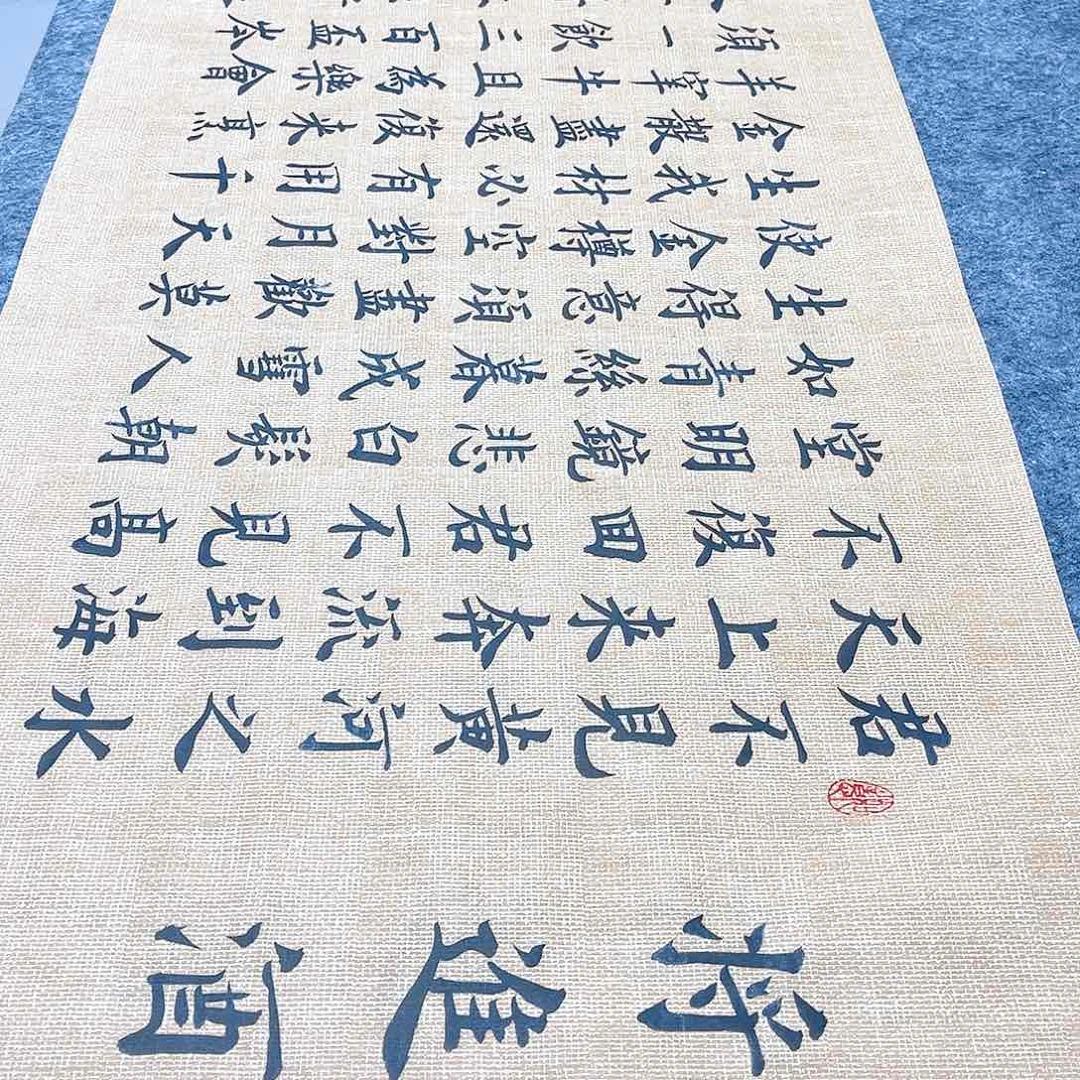 将進酒
君不見黄河之水
天上来奔流到海
不復回君不見高
堂明鏡悲白髮朝
如青絲暮成雪人
生得意須盡歡莫
使金樽空對月天
生我材必有用千
金散盡還復来烹
羊宰牛且為樂會
須一飲三百盃岑